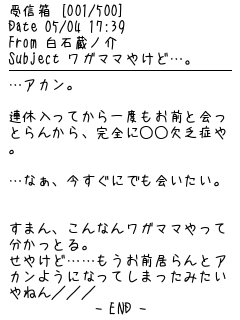 受信箱 [001/500]
Date 05/04 17:39
From 白石蔵ノ介
Subject ワガママやけど…。
…アカン。
連休入ってから一度もお前と会っ
とらんから、完全に○○欠乏症や
。
…なぁ、今すぐにでも会いたい。
すまん、こんなんワガママやって
分かっとる。
せやけど……もうお前居らんとア
カンようになってしまったみたい
やねん///
- END -